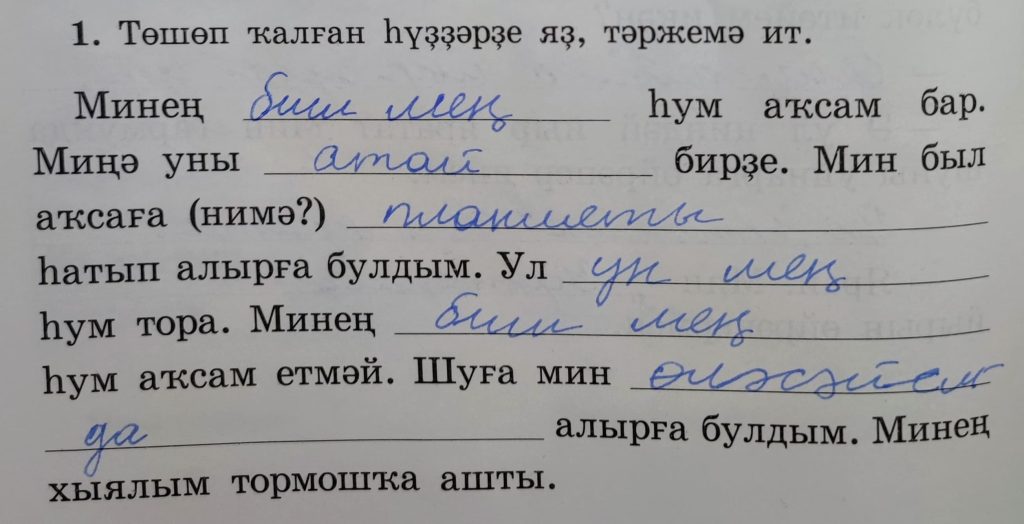 1. Төшөп ҡалған һүҙҙәрҙе яҙ, тәржемә ит.
Минең биш мең һум аҡсам бар.
Миңә уны атай бирҙе. Мин был
аҡсаға (нимә?) планшеты
һатып алырға булдым. Ул ун мең
һум тора. Минең биш мең
һум аҡсам етмәй. Шуға мин өләсәйем
да алырға булдым. Минең
хыялым тормошҡа ашты.